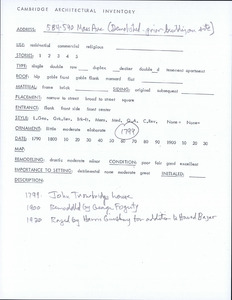 CAMBRIDGE ARCHITECTURAL INVENTORY
ADDRESS: 584-590 Mass Ave (Demolished - prior building on site)
USE: residential commercial religious
STORIES: 1 2 3 4 5
TYPE: single double row duplex decker double d apartment
ROOF: hip gable gambrel mansard flat
MATERIAL: frame brick SIDING: original subsequent
PLACEMENT: narrow to street broad to street square
ENTRANCE: flank front side front center
STYLE:
ORNAMENT: little moderate elaborate 1799
DATE: 1790 1800 10 20 30 40 50 60 70 80 90 1900 10 20 30
MAP:
REMODELING: drastic moderate minor CONDITION: poor fair good excellent
IMPORTANCE TO SETTING: detrimental none moderate great INITIALED:
DESCRIPTION:
1799 John Trowbridge house
1800 Remodelled by George Fogerty
1920 Razed by Harris Ginsburg for addition to Harvard Bazar